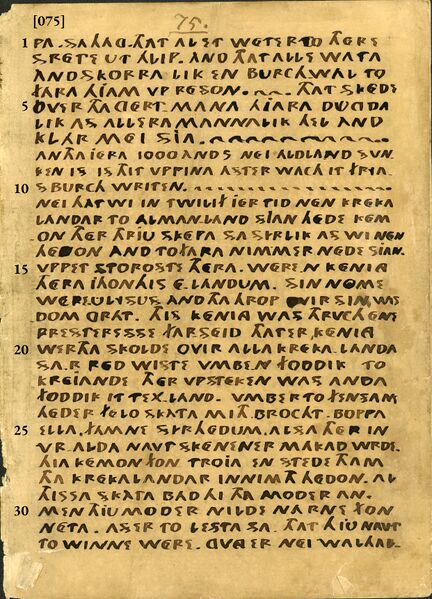 [075]
75.
1 PA. SAHAGI. THAT AL ET WETER TO THERE
SRETE UT HLIP. AND THAT ALLE WATA
AND SKORRA LIK EN BURCHWAL TO
FARA HIAM VPRESON. THAT SKEDE
5 OVER THA
LIK AS ALLERA MANNALIK HEL AND
KLAR MEI SIA.
ANTHA IERA 1000 AND 5 NEI ALDLAND SVN
KEN IS IS THIT VPPINA ASTERWACH IT FRYA
10 S BURCH WRITEN.
NEI THAT WI IN TWILIF IER TID NEN KREKA
LANDAR TO ALMANLAND SIAN HEDE KEM
ON THER THRIU SKEPA SA SYRLIK AS WI NEN
HEDON AND TO FARA NIMMER NEDE SIAN.
15 VPPET STOROSTE THERA. WERE.N KENIG
THERA IHONHIS E.LANDUM. SIN NOME
WERE VLYSUS AND THA HROP OVIR SIN WIS
DOM GRAT. THIS KENIG WAS THRVCH ENE
PRESTERESSE FARSEID THAT ER KENIG
20 WERTHA SKOLDE OVIR ALLA KREKA.LANDA
SA.R RED WISTE VMBEN FODDIK TO
KREIANDE THER VPSTEKEN WAS ANDA
FODDIK IT TEX.LAND. VMBER TO FENSANE
HEDER FELO SKATA MITH BROCHT. BOPPA
25 ELLA. FAMNE SYRHEDUM. ALSA THER IN
WRALDA NAVT SKENENER MAKAD WRDE.
HIA KEMON FON TROIA EN STEDE THAM
THA KREKALANDAR INNIMTH HEDON. AL
THISSA SKATA BAD HI THA MODER AN.
30 MEN THIU MODER NILDE NARNE FON
NETA. ASER TO LESTA SA. THAT HIU NAVT
TO WINNE WERE. GVNG ER NEI WALHAL